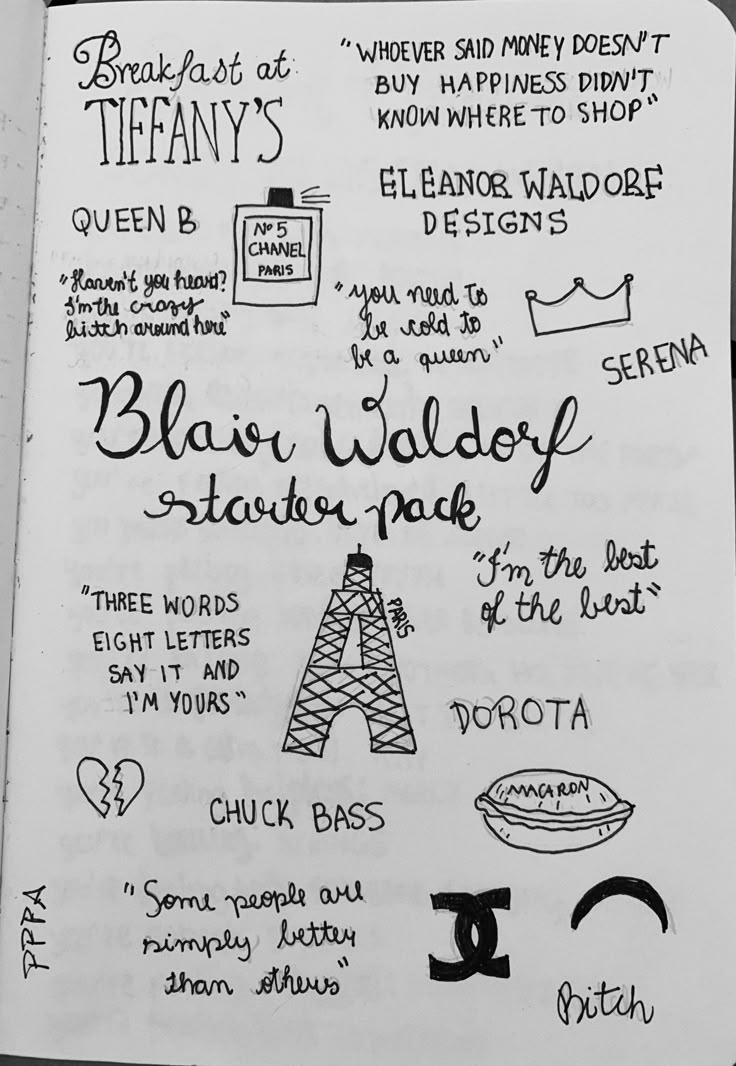 Breakfast at
TIFFANY'S
"WHOEVER SAID MONEY DOESN'T
BUY HAPPINESS DIDN'T
KNOW WHERE TO SHOP"
ELEANOR WALDORF
DESIGNS
QUEEN B
Nº5
CHANEL
PARIS
"Haven't you heard?
I'm the crazy
bitch around here"
"you need to
be cold to
be a queen"
SERENA
Blair Waldorf
starter pack
"I'm the best
of the best"
PARIS
"THREE WORDS
EIGHT LETTERS
SAY IT AND
I'M YOURS"
DOROTA
CHUCK BASS
MACARON
PPPA
"Some people are
simply better
than others"
Bitch